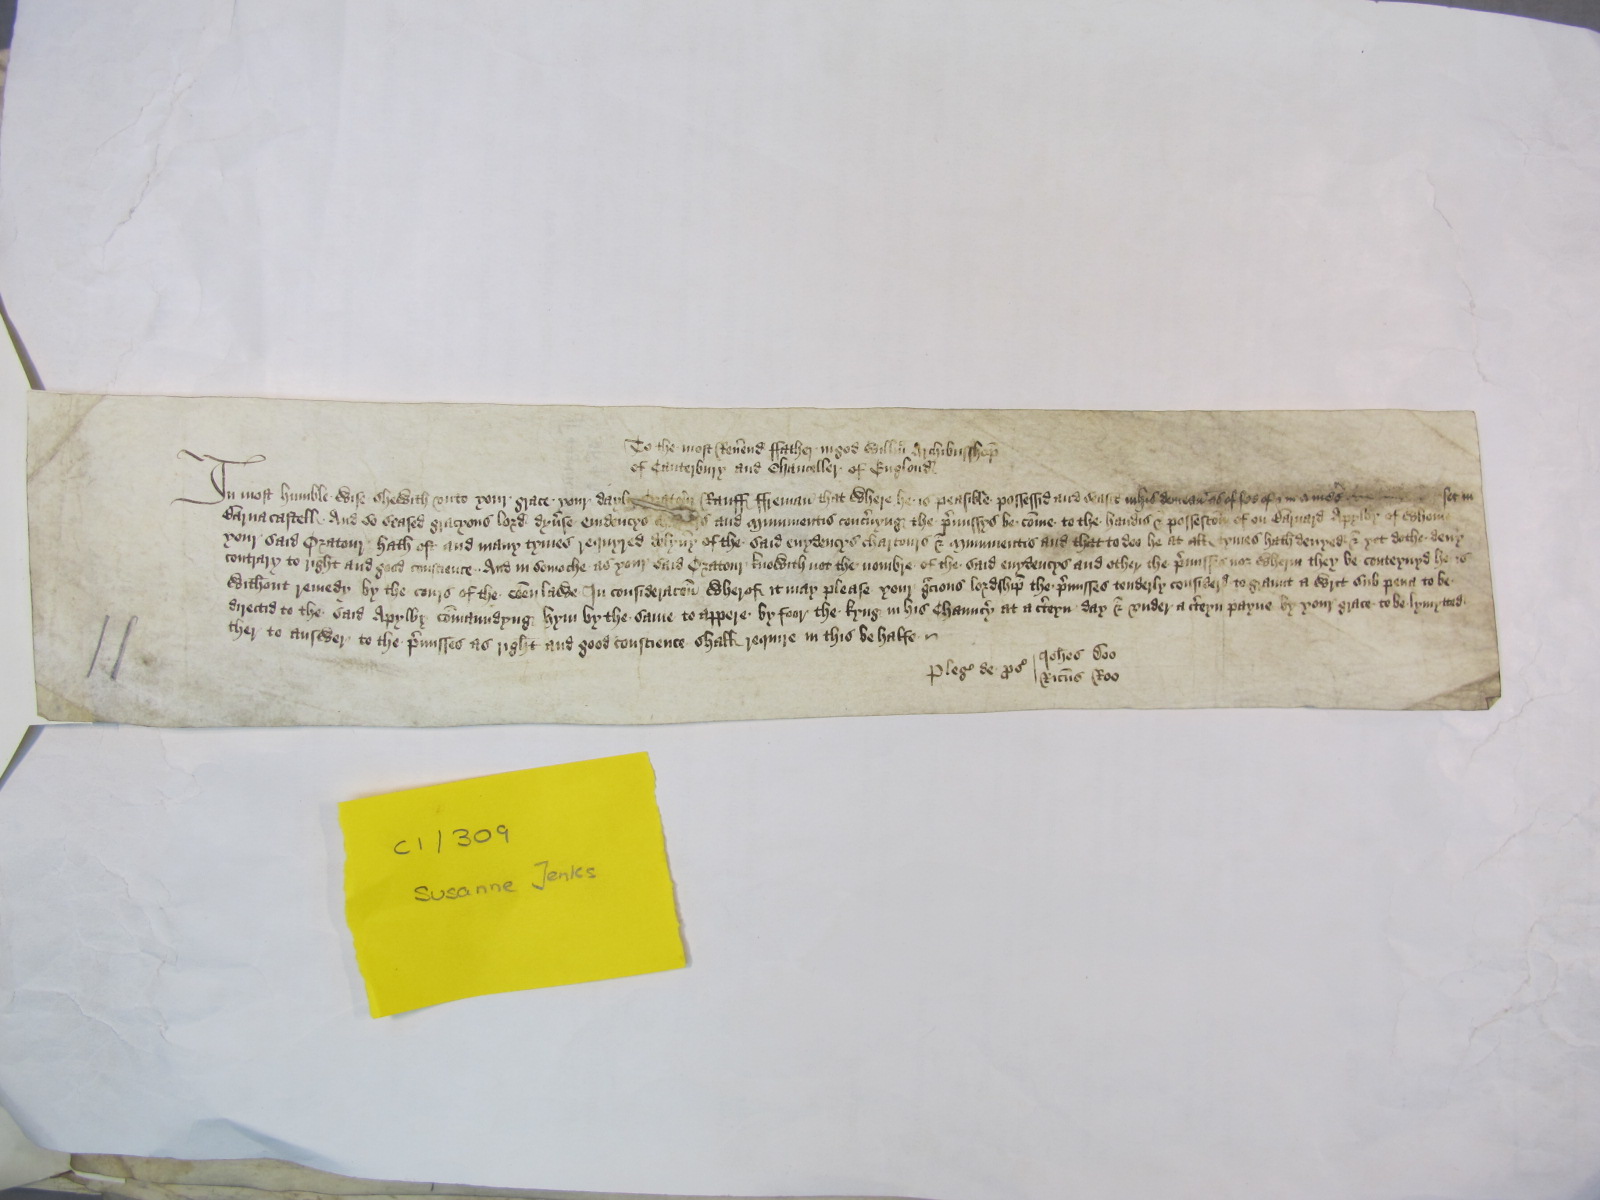 To the most Reũend ffather in god Willm̃ Archibusshop̃
of Canterbury and Chaunceller of England
In most humble wise shewith vnto your grace your dayly Oratour Rauff ffreman that where he is peasible possessid and seasid in his demean as of fee of in set in
Barnacastell And so seased gracyous lord dyũse euidencys and mynumentis concẽyng the p̃missys be come to the handis & possession of on Barnard Apylby of whom
your said Oratour hath oft and many tymes requyred delyuy of the said euydencys chartours & mynumentis and that to doo he at all tymes hath denyed & yet dothe deny
contrary to right and good conscience And in somoche as your said Oratour knowith not the nombre of the said euydencys and other the p̃missis nor wherin they be conteynyd he is
without remedy by the cours of the cõen lawe In consideracõn wherof it may please your g̃cious lordship the p̃misses tenderly considerd to graunt a writ sub pena to be
directid to the said Apylby com̃aundyng hym by the same to appere by foor the kyng in his Chauncy at a c̃teyn day & vnder a c̃teyn payne by your grace to be lymyted
ther to answer to the p̃misses as right and good conscience shall require in this be halfe
Pleg de pro Johes Doo
Ricũs Roo
11
C1/309
Susanne Jenks